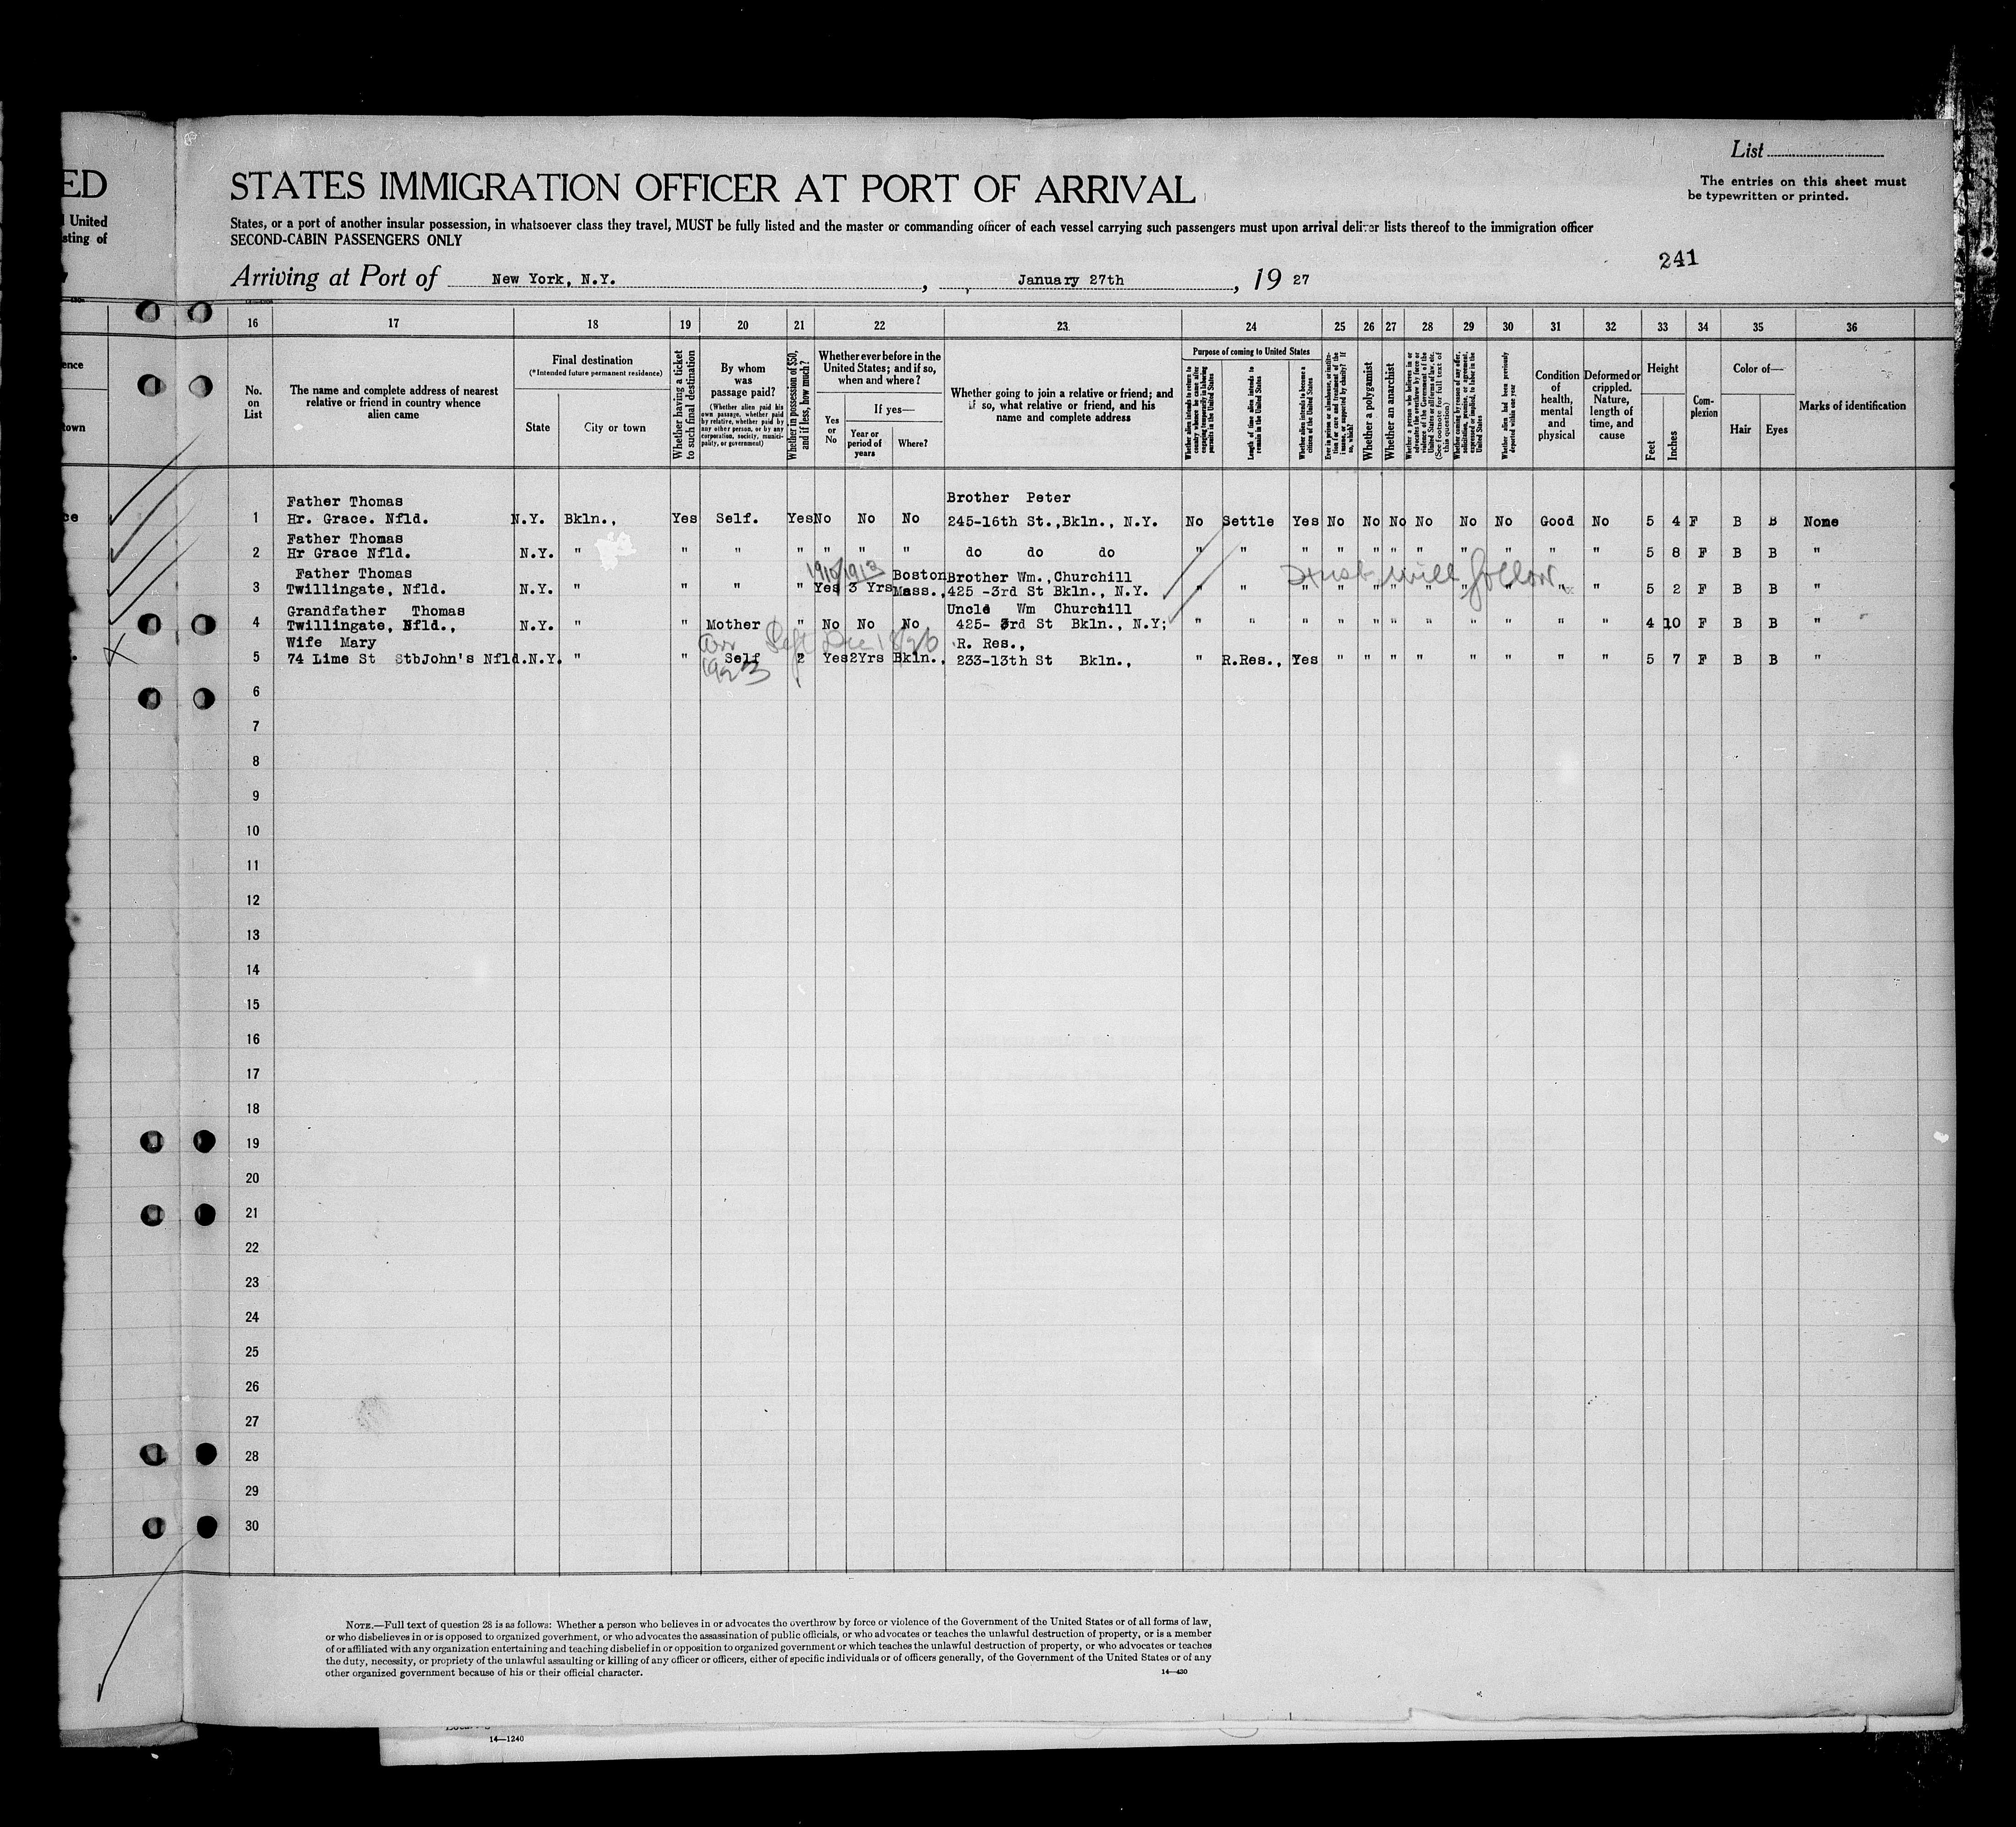 List
The entries on this sheet must
be typewritten or printed.
ED
STATES IMMIGRATION OFFICER AT PORT OF ARRIVAL
United
sting of
States, or a port of another insular possession, in whatsoever class they travel, MUST be fully listed and the master or commanding officer of each vessel carrying such passengers must upon arrival deliver lists thereof to the immigration officer
SECOND-CABIN PASSENGERS ONLY
241
Arriving at Port of New York, N.Y. , January 27th , 19 27
16 17 18 19 20 21 22 23 24 25 26 27 28 29 30 31 32 33 34 35 36
ence
town
No. on List
The name and complete address of nearest relative or friend in country whence alien came
Final destination
(*Intended future permanent residence)
State
City or town
Whether having a ticket to such final destination
By whom was passage paid?
(Whether alien paid his own passage, whether paid by relative, whether paid by any other person, or by any corporation, society, municipality, or government)
Whether in possession of $50, and if less, how much?
Whether ever before in the United States; and if so, when and where?
Yes or No
If yes—
Year or period of years
Where?
Whether going to join a relative or friend; and if so, what relative or friend, and his name and complete address
Purpose of coming to United States
Whether alien intends to return to country whence he came after engaging temporarily in laboring pursuits in the United States
Length of time alien intends to remain in the United States
Whether alien intends to become a citizen of the United States
Ever in prison or almshouse, or institution for care and treatment of the insane, or supported by charity? If so, which?
Whether a polygamist
Whether an anarchist
Whether a person who believes in or advocates the overthrow by force or violence of the Government of the United States or all forms of law, etc. (See footnote for full text of this question)
Whether coming by reason of any offer, solicitation, promise, or agreement, expressed or implied, to labor in the United States
Whether alien had been previously deported within one year
Condition of health, mental and physical
Deformed or crippled. Nature, length of time, and cause
Height
Feet
Inches
Complexion
Color of—
Hair
Eyes
Marks of identification
Father Thomas Brother Peter
1 Hr. Grace. Nfld. N.Y. Bkln., Yes Self. Yes No No No 245-16th St., Bkln., N.Y. No Settle Yes No No No No No No Good No 5 4 F B B None
Father Thomas
2 Hr Grace Nfld. N.Y. " " " " " " " do do do " " " " " " " " " " " 5 8 F B B "
Father Thomas 1910/1913 Boston Brother Wm., Churchill
3 Twillingate, Nfld. N.Y. " " " " Yes 3 Yrs Mass., 425 -3rd St Bkln., N.Y. " " " " " " " " " " " 5 2 F B B "
will follow
Grandfather Thomas Uncle Wm Churchill
4 Twillingate, Nfld., N.Y. " " Mother " No No No 425- 3rd St Bkln., N.Y; " " " " " " " " " " " 4 10 F B B "
Wife Mary R. Res.,
arr 1923 Left Dec 18/26
5 74 Lime St StbJohn's Nfld. N.Y. " " Self 2 Yes 2Yrs Bkln., 233-13th St Bkln., " R.Res., Yes " " " " " " " " 5 7 F B B "
6
7
8
9
10
11
12
13
14
15
16
17
18
19
20
21
22
23
24
25
26
27
28
29
30
NOTE.—Full text of question 28 is as follows: Whether a person who believes in or advocates the overthrow by force or violence of the Government of the United States or of all forms of law,
or who disbelieves in or is opposed to organized government, or who advocates the assassination of public officials, or who advocates or teaches the unlawful destruction of property, or is a member
of or affiliated with any organization entertaining and teaching disbelief in or opposition to organized government or which teaches the unlawful destruction of property, or who advocates or teaches
the duty, necessity, or propriety of the unlawful assaulting or killing of any officer or officers, either of specific individuals or of officers generally, of the Government of the United States or of any
other organized government because of his or their official character.
14—430
14—1240